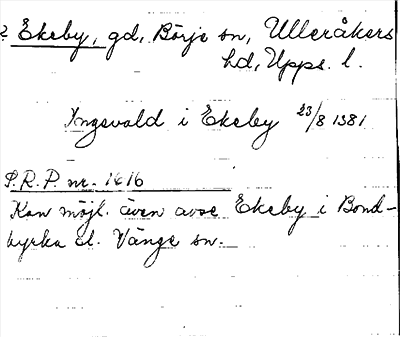 ? Ekeby, gd, Börje sn, Ulleråkers
hd, Upps. l.
Yngevald i Ekeby 23/8 1381
P.R.P. nr. 1616
Kan möjl. även avse Ekeby i Bond-
kyrka el. Vänge sn.